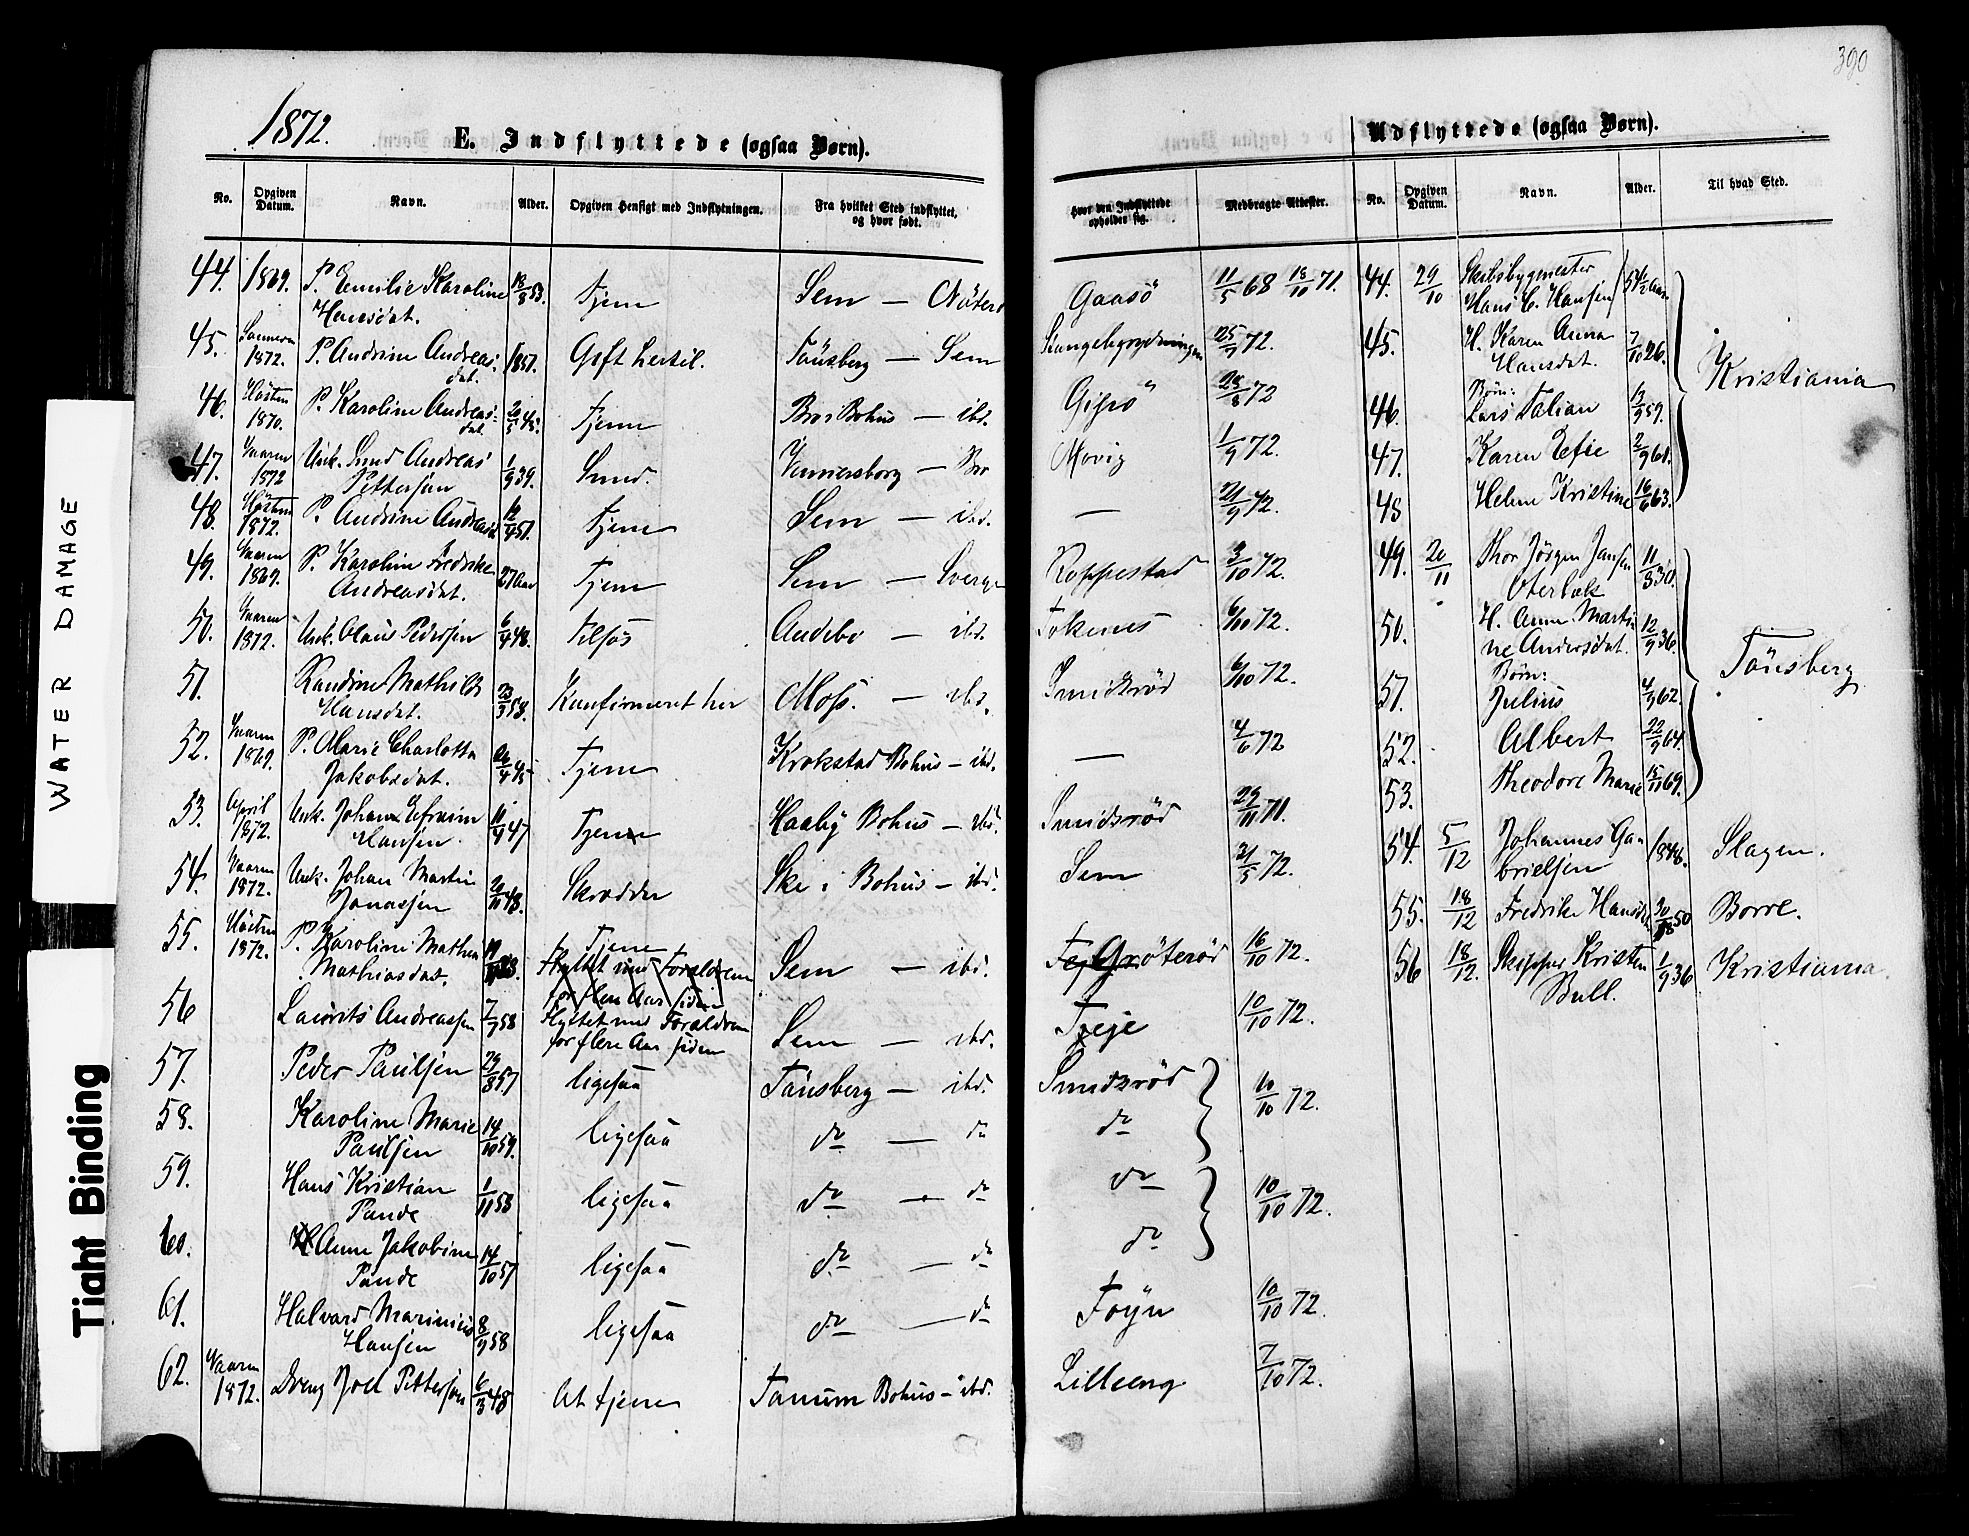 390
1872.
E. Indflyttede (ogsaa Børn).
Udflyttede (ogsaa Børn).
No. Opgiven Datum. Navn. Alder. Opgiven Hensigt med Indflytningen. Fra hvilket Sted indflyttet, og hvor født.
Hvor den Indflyttede opholder sig. Medbragte Attester. No. Opgiven Datum. Navn. Alder. Til hvad Sted.
44. 1869. P. Emilie Karoline Hansdat. 18/8 53. Tjene Sem — Nøterø Gaasö 11/5 68 18/10 71.
45. 1872. P. Andrine Andreasdat. 1851. Gift Tönsberg — Sem 25/9 72.
46. Hösten 1870. P. Karoline Andreasdat. 20/5 45. Tjene Bro Bohus — ibd. 28/8 72
47. Vaaren 1872 Unk. Smed Andreas Pettersen 1/9 39. Smed. Vennersborg — Movig 1/9 72.
48. Hösten 1872. P. Andrine 12/4 51. Tjene Sem — ibd. — 21/9 72.
49. Vaaren 1869. P. Karoline Fredrike Andreasdat. 27 Aar Tjene Sem — Sverge Roppestad 3/10 72.
50. Vaaren 1872. Unk. Olaus Pedersen 6/4 48. Tilsös Andebo — ibd. Tokenes 6/10 72.
51. Randine Mathilde Hansdat. 23/3 58. Konfirmeret her Moss. — ibd. Smidsröd 6/10 72.
52. Vaaren 1869. P. Marie Charlotta Jakobsdat. 26/4 45 Tjene Krokstad Bohus — ibd. — 4/6 72
53. April 1872. Unk. Johan Efraim Hansen. 11/4 47 Tjene Haaby Bohus — ibd. Smidsröd 29/11 71.
54. Vaaren 1872. Unk. Johan Martin Jonassen 20/11 48. Skrædder Ske i Bohus — ibd. Sem 21/5 72.
55. Hösten 1872. P. Karoline Mathea Mathiasdat. Tjene Sem — ibd. Gröteröd 16/10 72.
Flyttet med Forældrene
for flere Aar siden
56 Laurits Andreassen 7/7 58 Flyttet med Forældrene for flere Aar siden Sem — ibd. Teje 10/10 72.
57. Peder Paulsen 29/8 57 ligesaa Tönsberg — ibd. Smidsröd 10/10 72.
58. Karoline Marie Paulsen 14/10 59. ligesaa do — do do
59. Hans Kristian Pande 1/11 53 ligesaa do — do do 10/10 72.
60. Anne Jakobine Pande 14/10 57 ligesaa do — do do
61. Halvard Marinius Hansen 8/9 58 ligesaa do — do Föyn 10/10 72.
62. Vaaren 1872. Dreng Joel Pettersen 6/3 48 At tjene Tanum Bohus — ibd. Lilleeng 7/10 72.
44. 29/10 Skibsbygmester Hans C. Hansen 54 1/2 Aar.
45. H. Karen Anna Hansdat. 7/10 26. Kristiania
Børn:
46. Lars Talian 12/9 59.
47. Karen Eefie 2/9 61.
48 Helene Kristine 16/6 63.
49. 20/11 Thor Jörgen Jansen Oterbæk 11/3 30.
50. H. Anne Martine Andersdat. 12/9 36. Tönsberg
Børn:
51. Julius 4/9 62.
52. Albert 22/9 64.
53. Theodore Marie 15/11 69.
54. 5/12 Johannes Gabrielsen 1848. Slagen.
55. 18/12 Fredrike Borre.
56 18/12. Skipper Kristen Bull. 1/9 36 Kristiania.
WATER DAMAGE
Tight Binding